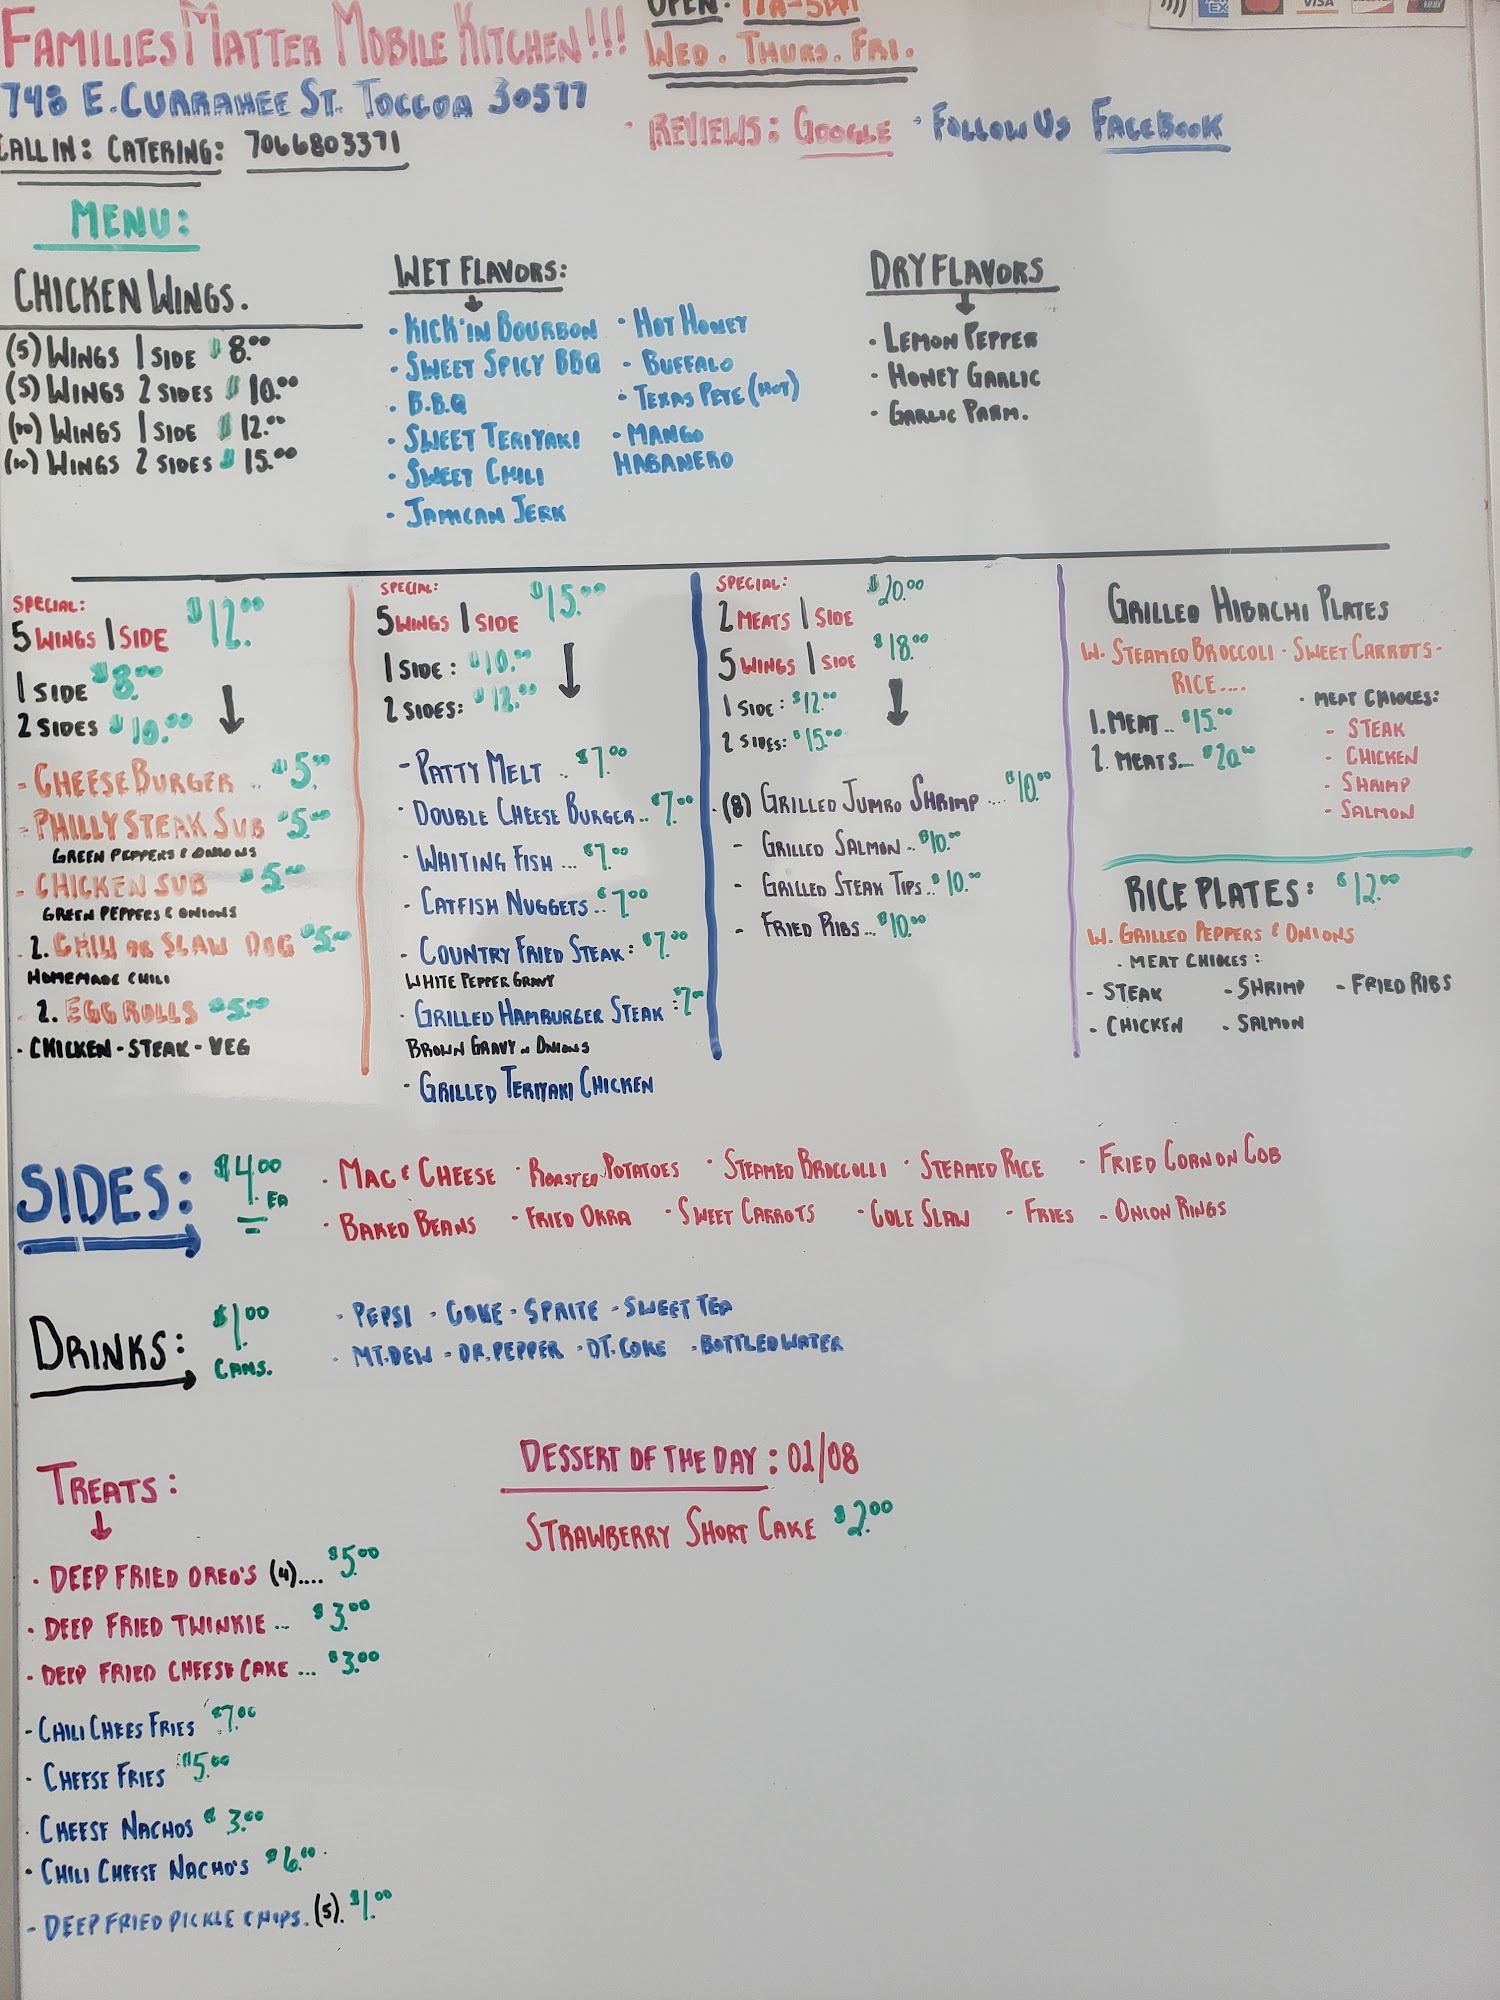 FAMILIES MATTER MOBILE KITCHEN!!!
OPEN: 11A-5PM
WED. THURS. FRI.
748 E. CURRAHEE ST. TOCCOA 30577
CALL IN: CATERING: 7066803371
· REVIEWS: GOOGLE · FOLLOW US FACEBOOK
VISA
MENU:
CHICKEN WINGS.
(5) WINGS 1 SIDE $8.00
(5) WINGS 2 SIDES $10.00
(10) WINGS 1 SIDE $12.00
(10) WINGS 2 SIDES $15.00
WET FLAVORS:
· KICK'IN BOURBON
· SWEET SPICY BBQ
· B.B.Q
· SWEET TERIYAKI
· SWEET CHILI
· JAMICAN JERK
· HOT HONEY
· BUFFALO
· TEXAS PETE (HOT)
· MANGO
HABANERO
DRY FLAVORS
· LEMON PEPPER
· HONEY GARLIC
· GARLIC PARM.
SPECIAL:
5 WINGS 1 SIDE $12.00
1 SIDE $8.00
2 SIDES $10.00
- CHEESE BURGER .. $5.00
- PHILLY STEAK SUB $5.00
GREEN PEPPERS & ONIONS
- CHICKEN SUB $5.00
GREEN PEPPERS & ONIONS
. 2. CHILI OR SLAW DOG $5.00
HOMEMADE CHILI
. 2. EGG ROLLS $5.00
· CHICKEN - STEAK - VEG
SPECIAL:
5 WINGS 1 SIDE $15.00
1 SIDE: $10.00
2 SIDES: $12.00
- PATTY MELT .. $7.00
· DOUBLE CHEESE BURGER.. $7.00
· WHITING FISH ... $7.00
· CATFISH NUGGETS.. $7.00
· COUNTRY FRIED STEAK: $7.00
WHITE PEPPER GRAVY
· GRILLED HAMBURGER STEAK: $7.00
BROWN GRAVY & ONIONS
· GRILLED TERIYAKI CHICKEN
SPECIAL: $20.00
2 MEATS 1 SIDE
5 WINGS 1 SIDE $18.00
1 SIDE: $12.00
2 SIDES: $15.00
· (8) GRILLED JUMBO SHRIMP.... $10.00
- GRILLED SALMON.. $10.00
- GRILLED STEAK TIPS.. $10.00
- FRIED RIBS... $10.00
GRILLED HIBACHI PLATES
W. STEAMED BROCCOLI · SWEET CARROTS -
RICE....
1. MEAT.. $15.00
2. MEATS... $20.00
· MEAT CHIOCES:
- STEAK
- CHICKEN
- SHRIMP
- SALMON
RICE PLATES: $12.00
W. GRILLED PEPPERS & ONIONS
· MEAT CHIOCES:
- STEAK - SHRIMP - FRIED RIBS
- CHICKEN - SALMON
SIDES: $4.00 EA
· MAC & CHEESE · ROASTED POTATOES · STEAMED BROCCOLLI · STEAMED RICE · FRIED CORN ON COB
· BAKED BEANS · FRIED OKRA · SWEET CARROTS · COLE SLAW - FRIES - ONION RINGS
DRINKS: $1.00 CANS.
· PEPSI · COKE · SPRITE · SWEET TEA
· MT. DEW · DR. PEPPER · DT. COKE · BOTTLED WATER
TREATS:
· DEEP FRIED OREO'S (4).... $5.00
· DEEP FRIED TWINKIE ... $3.00
· DEEP FRIED CHEESE CAKE ... $3.00
- CHILI CHEES FRIES $7.00
· CHEESE FRIES $5.00
· CHEESE NACHOS $3.00
· CHILI CHEESE NACHO'S $6.00
- DEEP FRIED PICKLE CHIPS. (5). $1.00
DESSERT OF THE DAY: 01/08
STRAWBERRY SHORT CAKE $2.00